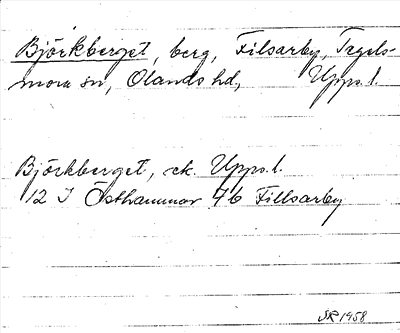 Björkberget, berg, Filsarby, Tegels-
mora sn, Olands hd, Upps. l.
Björkberget, ek. Upps. l.
12 I Östhammar 7b Fillsarby
SR 1958